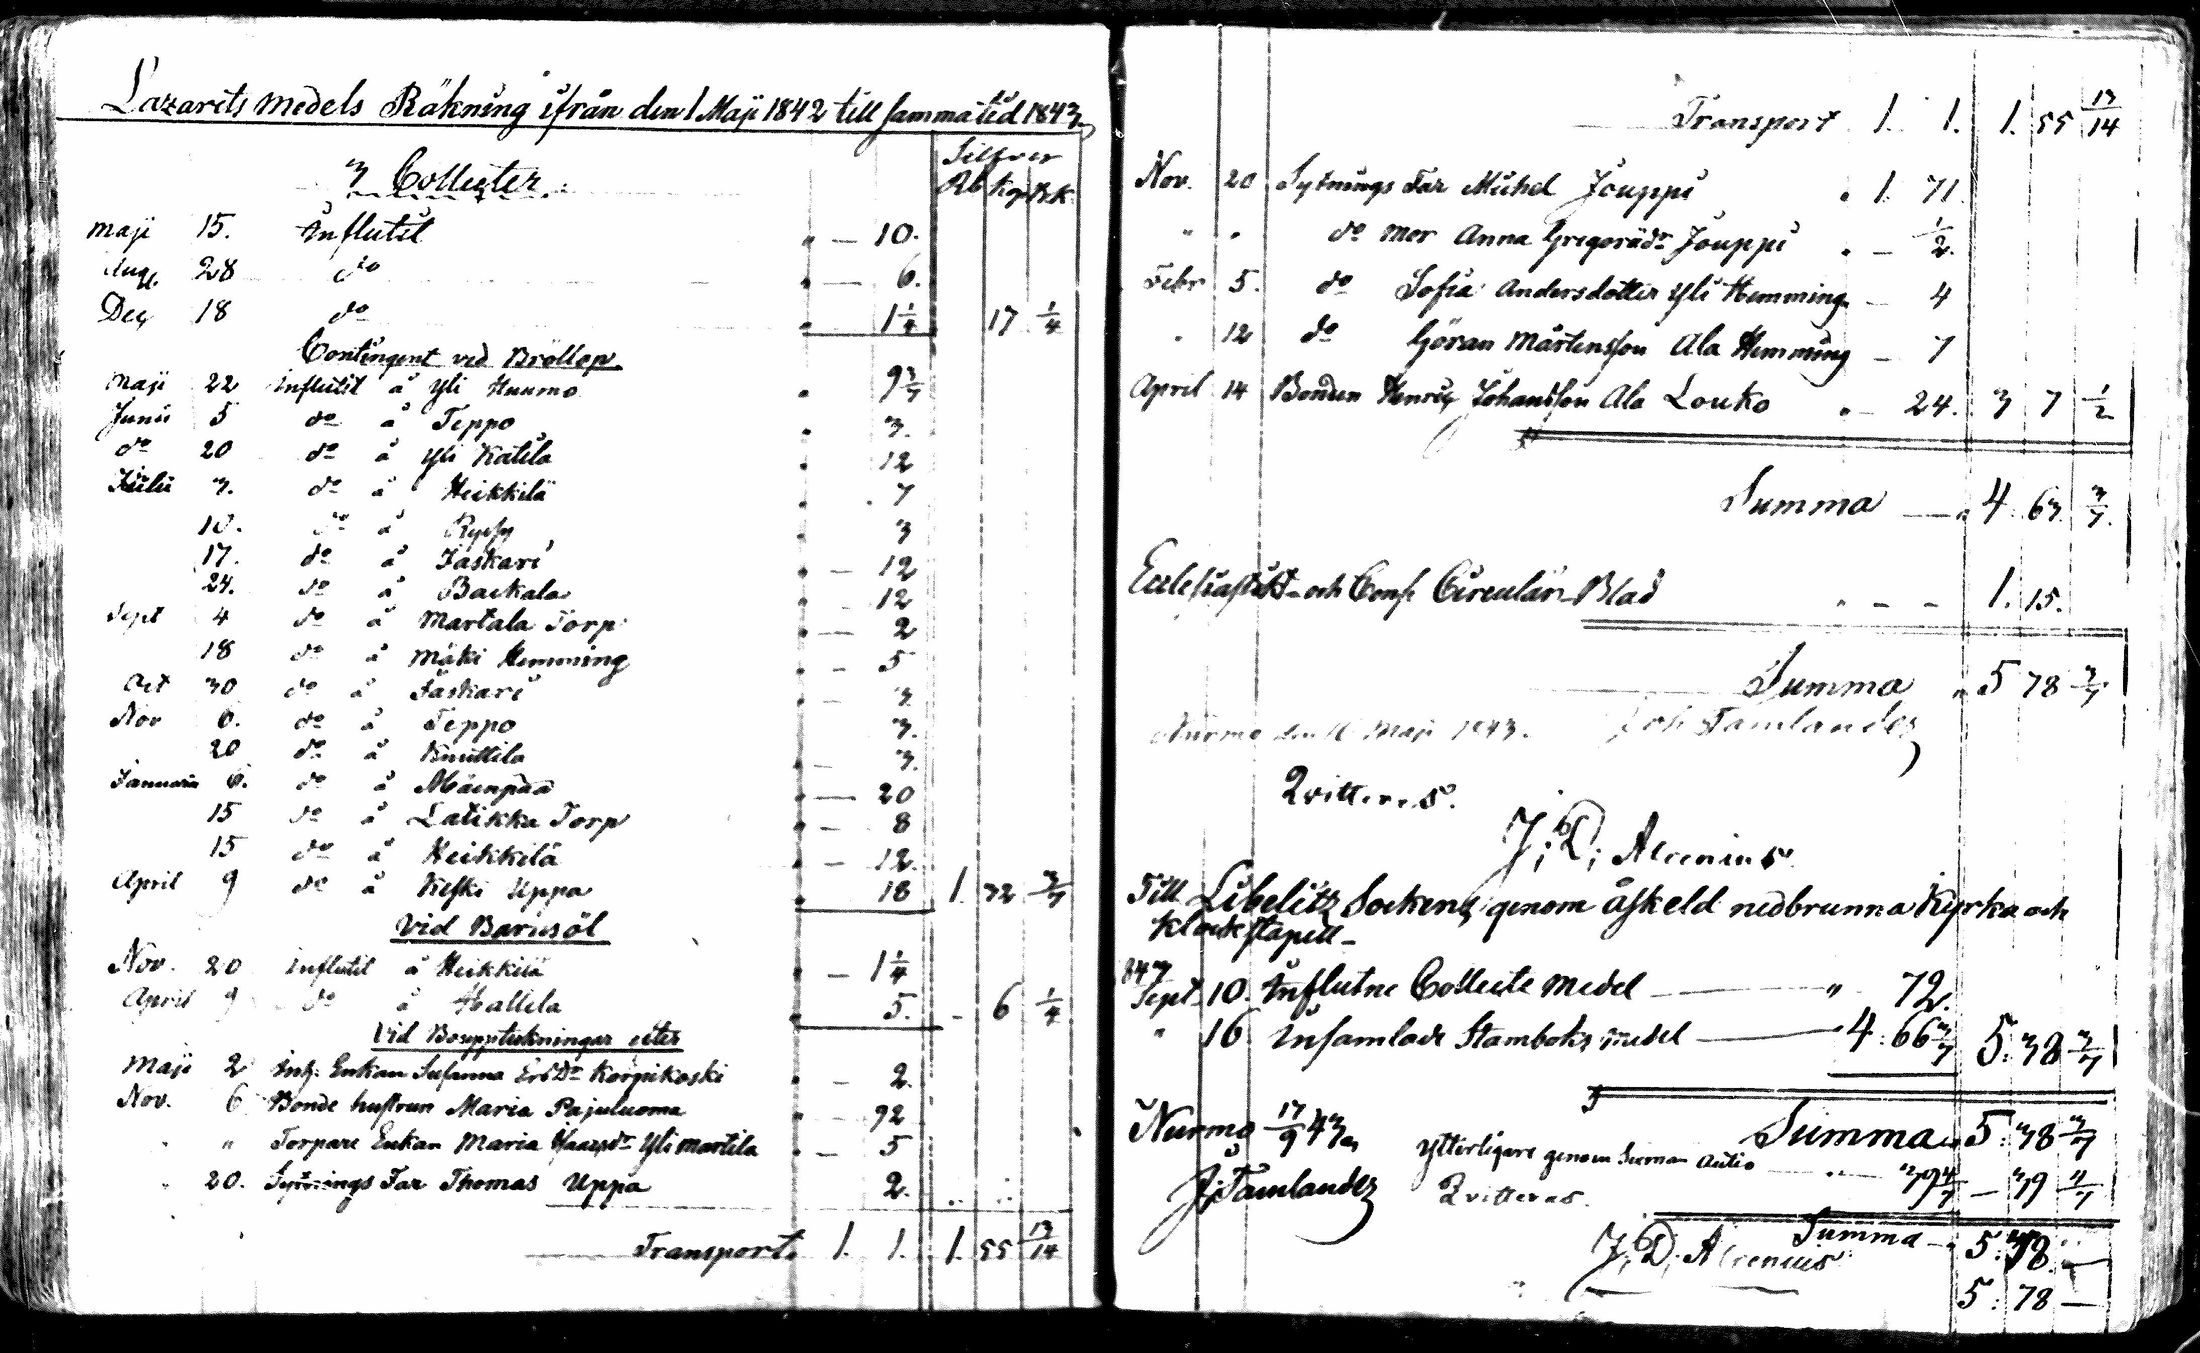 Lazarets medels Räkning ifrån den 1 Maji 1842 till samma tid 1843
Silfver
3 Collecter. Rb kop brk
Maji 15. Influtit " — 10.
Aug. 28 do " — 6.
Dec. 18 do " 1 1/4 17 1/4
Contingent vid Bröllop.
Maji 22 influtit å Yli Huumo " 9 3/7
Junii 5 do å Teppo " 3.
do 20 do å Yli Katila " 12
Julii 3. do å Heikkilä " 7
10. do å 3
17. do å Jaskari " — 12
24. do å Backala " — 12
Sept 4 do å Martala Torp " — 2
18 do å Mäki Hemming " — 5
Oct 30 do å Jaskari " — 3
Nov 6. do å Teppo 3.
20 do å Knuttila " — 3.
Januarii 6. do å Mäenpää " — 20
15 do å Latikka Torp " — 8
15 do å Heikkilä " — 12.
April 9 do å Keski Uppa " 18 1. 32 3/7
Vid Barnsöl
Nov. 20 influtit å Heikkilä " — 1 1/4
April 9 do å Hallila " 5. - 6 1/4
Vid Bouppteckningar efter
Maji 2 Inh. Enkan Susanna Ersdr Korpikoski " — 2.
Nov. 6 Bonde hustrun Maria Pajuluoma " — 92
" " Torpare Enkan Maria Isaacsdr Yli Martila " — 5
" 20. Sytnings Far Thomas Uppa 2.
Transport 1. 1. 1. 55 13/14
Transport 1. 1. 1. 55 13/14
Nov. 20 Sytnings Far Michel Jouppi " 1. 71.
" " do Mor Anna Gregorsdr Jouppi " — 1/2.
Febr 5. do Sofia Andersdotter Yli Hemming — 4
" 12 do Göran Mårtensson Ala Hemming — 7
April 14 Bonden Henric Johansson Ala Louko " — 24. 3 7 1/2
Summa — " 4. 63 3/7.
Ecclesiastik- och Cons. Circulär-Blad " — — 1. 15.
Summa " 5 78 3/7
Nurmo den 16 Maji 1843. Joh Tamlander
Qvitteras.
J. D. Alcenius
Till Libelitz Sockens, genom åskeld nedbrunna Kyrka och
klockstapell —
843
Sept 10. Influtne Collecte medel — " 72.
" 16 Insamlade Stamboks medel — " 4: 66 3/7 5: 38 3/7
Summa " 5: 38 3/7
Nurmo 17/9 43. Ytterligare genom Auctio — " 39 4/7 — 39 4/7
J. Tamlander Qvitteras.
Summa — " 5: 78 —
J. D. Alcenius
5: 78 —